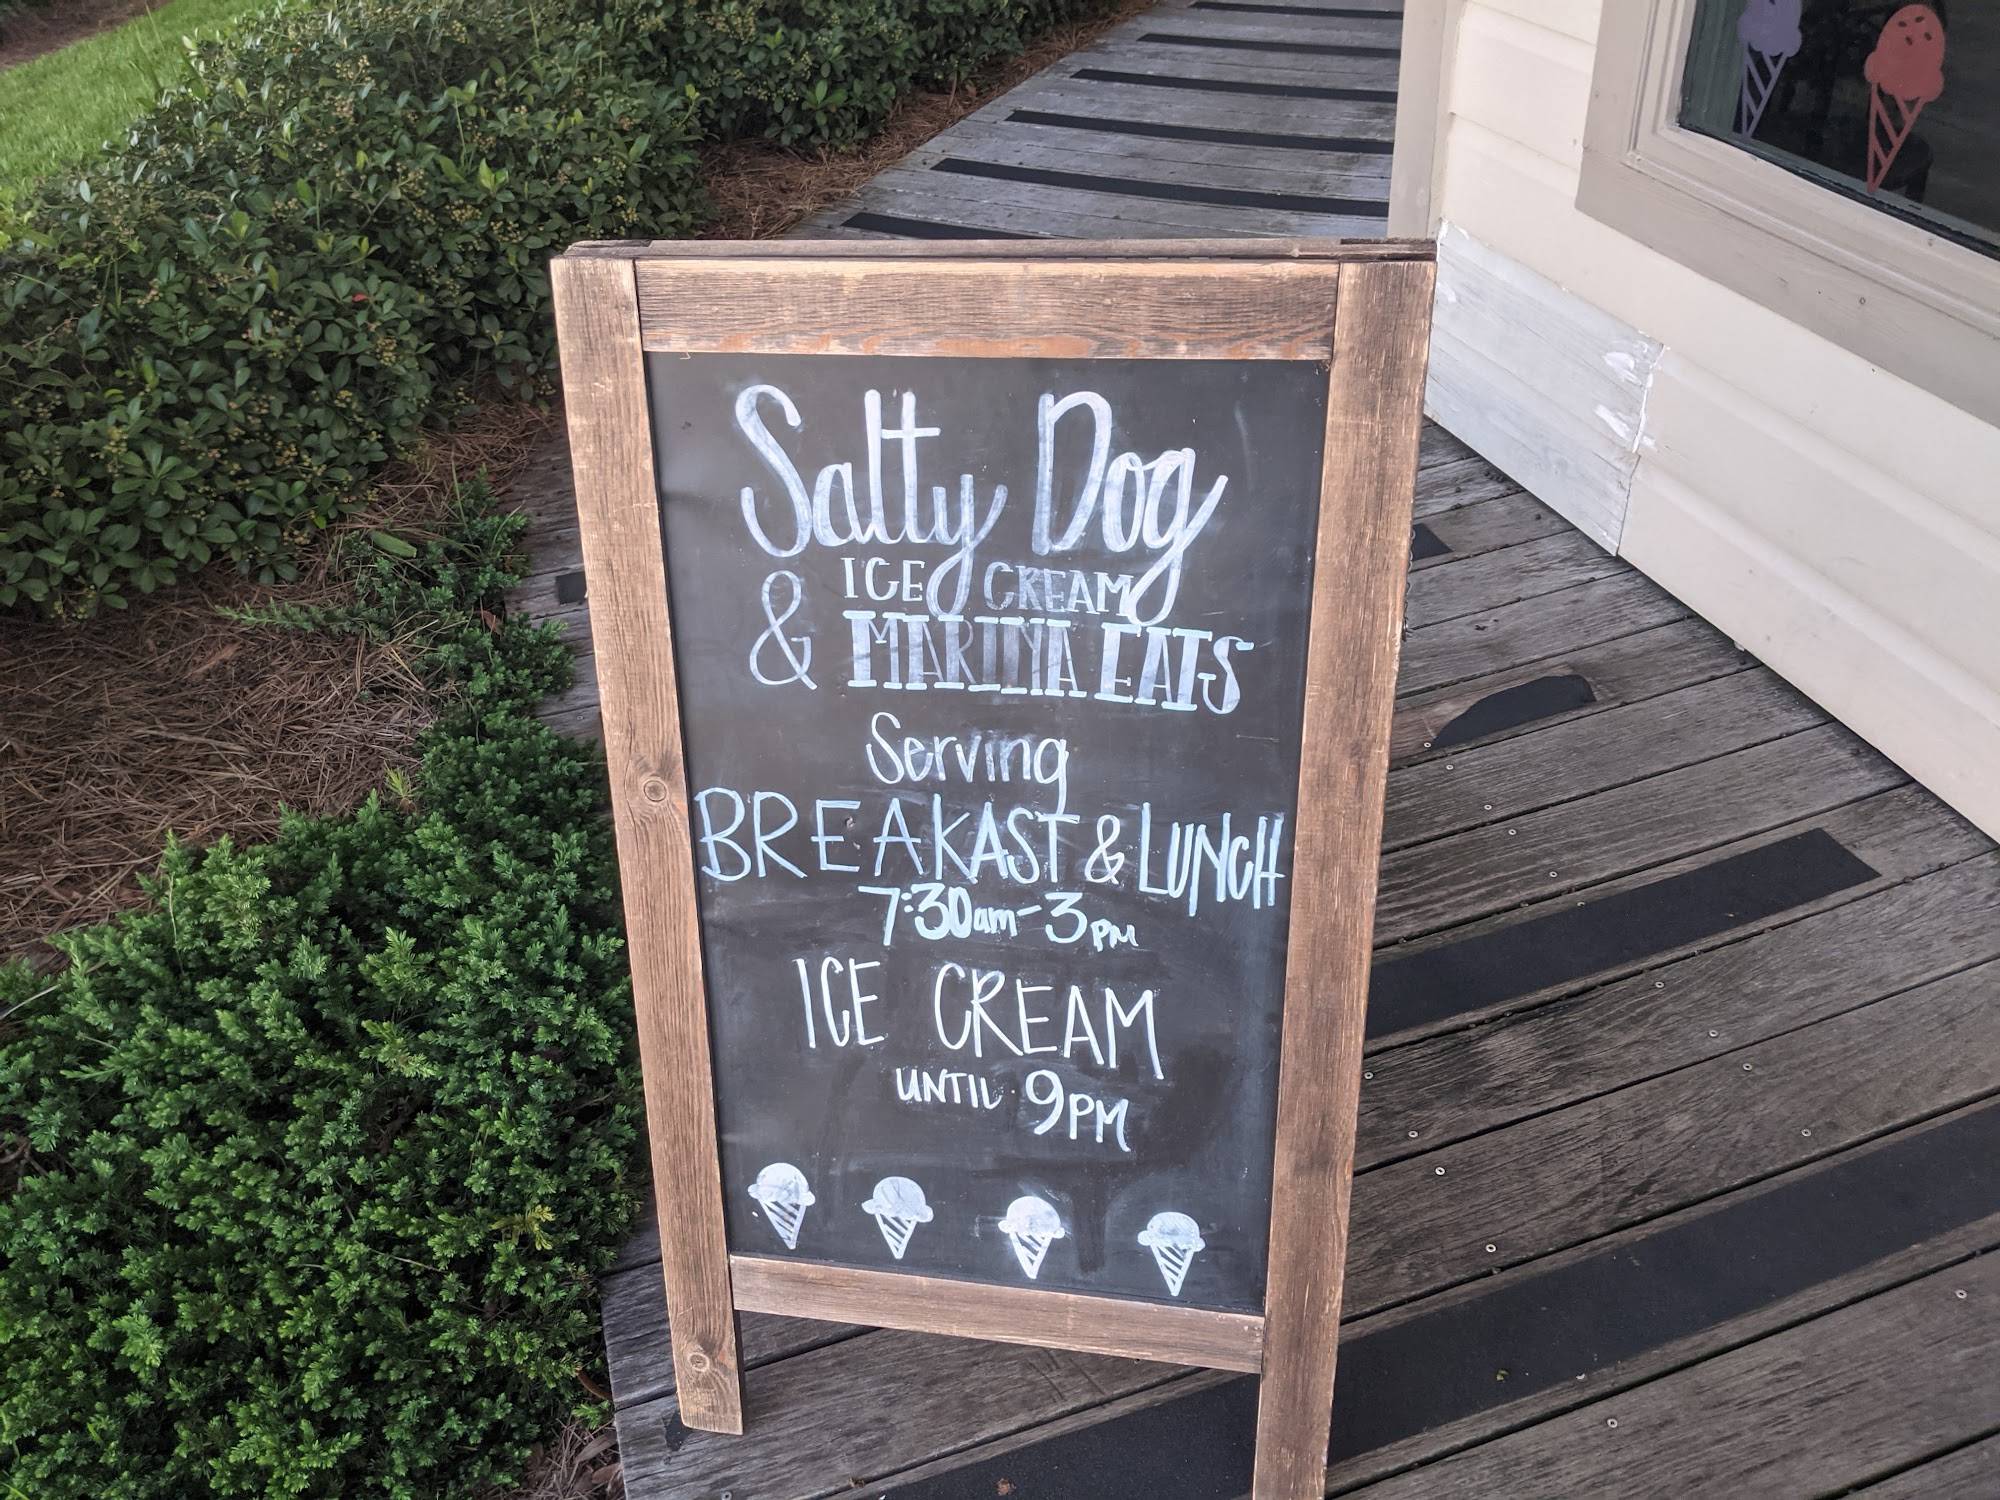 Salty Dog
ICE CREAM
& MARINA EATS
Serving
BREAKAST & LUNCH
7:30am - 3PM
ICE CREAM
UNTIL 9PM